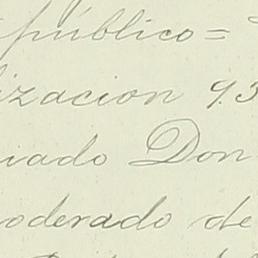 público=
ización 93
iado Don
oderado de